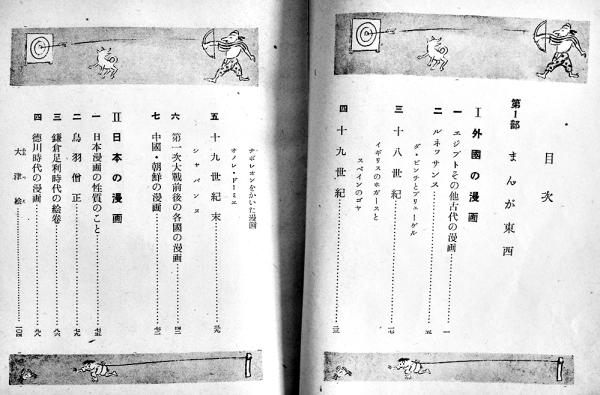 目次
第1部 まんが東西
Ⅰ 外國の漫画
一 エジプトその他古代の漫画……一
二 ルネッサンス……五
ダ・ビンチとブリューゲル
三 十八世紀……一七
イギリスのホガースと
スペインのゴヤ
四 十九世紀
ナポレオンをかいた漫画
オノレ・ドーミエ
五 十九世紀末
シャバンヌ
六 第一次大戰前後の各國の漫画……四二
七 中國・朝鮮の漫画
Ⅱ 日本の漫画
一 日本漫画の性質のこと……七五
二 鳥羽僧正……七九
三 鎌倉足利時代の絵巻……八六
四 德川時代の漫画……九八
大津絵……一〇四